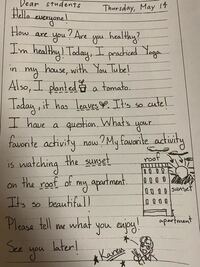 Dear students
Thursday, May 14
Hello everyone!
How are you? Are you healthy?
I'm healthy! Today, I practiced Yoga
in my house, with YouTube!
Also, I planted a tomato.
Today, it has leaves. It's so cute!
I have a question. What's your
favorite activity now? My favorite activity
is watching the sunset
on the roof of my apartment.
It's so beautiful!
Please tell me what you enjoy!
See you later!
Karen
roof
sunset
apartment